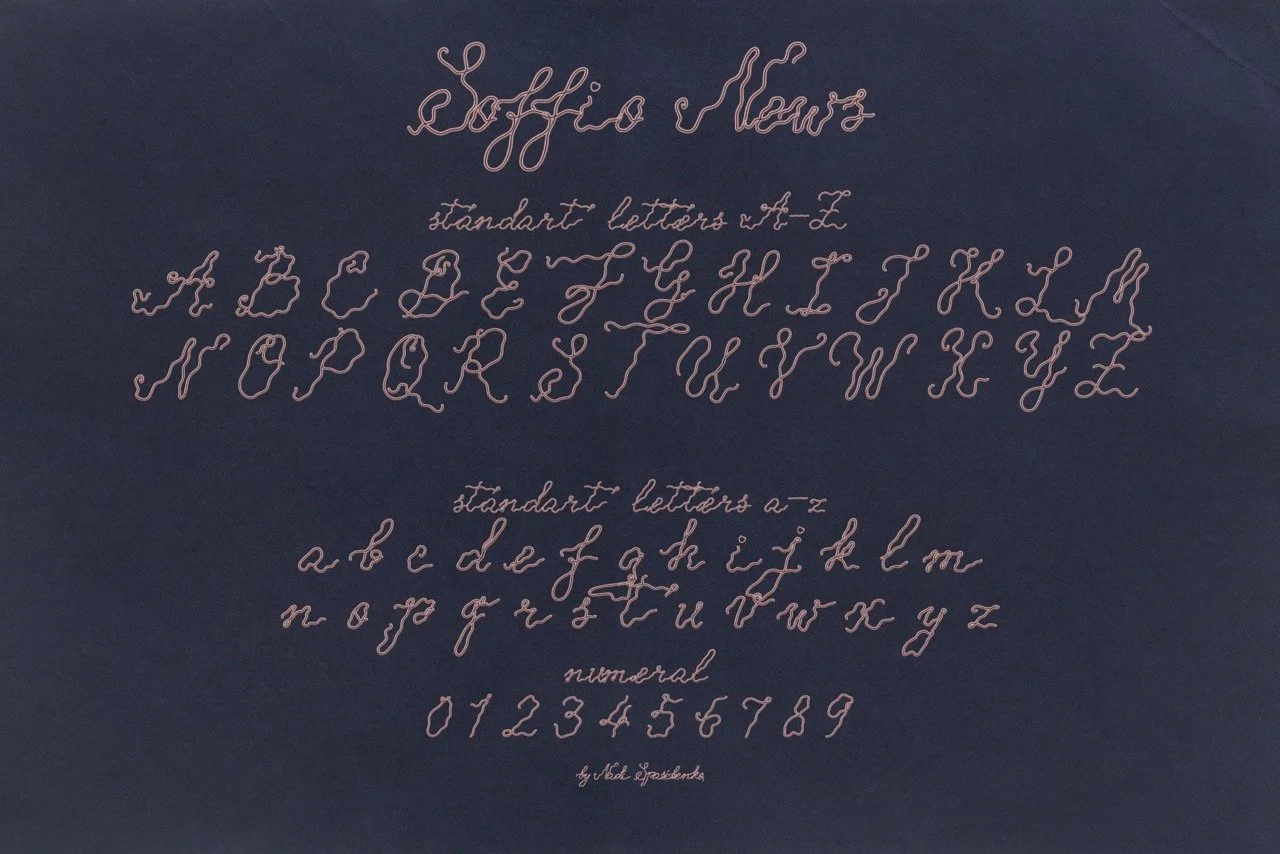 Soffio News
standart letters A-Z
A B C D E F G H I J K L M
N O P Q R S T U V W X Y Z
standart letters a-z
a b c d e f g h i j k l m
n o p q r s t u v w x y z
numeral
0 1 2 3 4 5 6 7 8 9
by Nadi Spasibenko